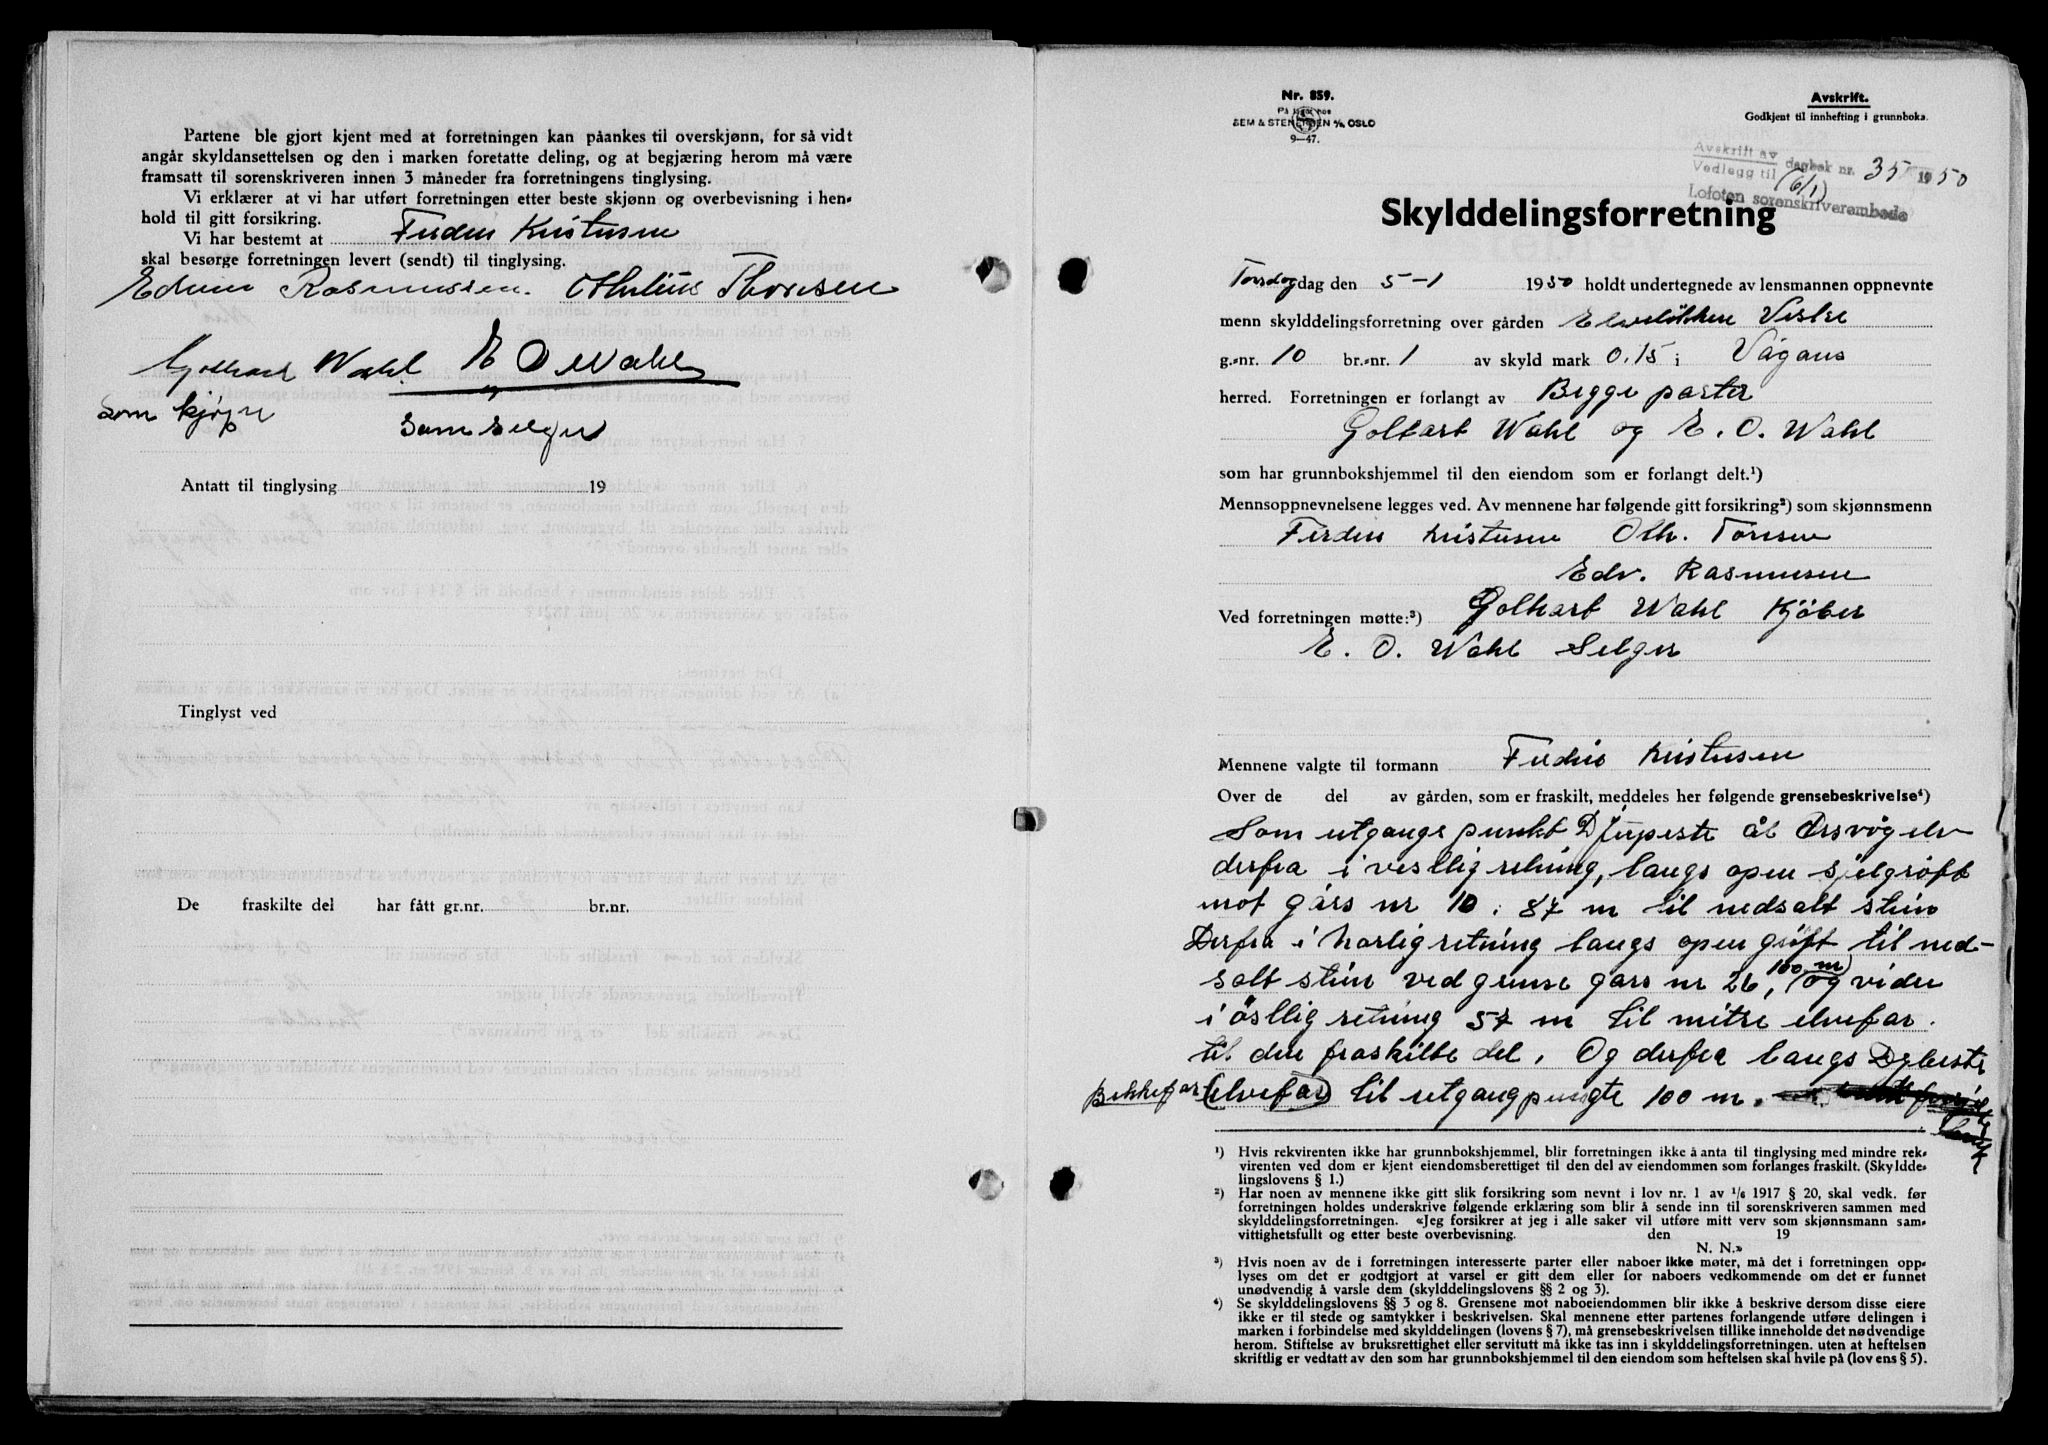 Partene ble gjort kjent med at forretningen kan påankes til overskjønn, for så vidt
angår skyldansettelsen og den i marken foretatte deling, og at begjæring herom må være
framsatt til sorenskriveren innen 3 måneder fra forretningens tinglysing.
Vi erklærer at vi har utført forretningen etter beste skjønn og overbevisning i hen-
hold til gitt forsikring.
Vi har bestemt at
skal besørge forretningen levert (sendt) til tinglysing.
Rasmussen. Othilius Thoresen
Golhart Wahl E O Wahl
som kjøper
som selger
Antatt til tinglysing 19
Tinglyst ved
De fraskilte del har fått gr.nr. br.nr.
Nr. 859.
På lager hos
SEM & STENERSEN A/S OSLO
9—47.
Avskrift.
Godkjent til innhefting i grunnboka.
Avskrift av
Vedlegg til dagbok nr. 35 1950
(6/1)
Lofoten sorenskriverembede
Skylddelingsforretning
Torsdag dag den 5-1 1950 holdt undertegnede av lensmannen oppnevnte
menn skylddelingsforretning over gården Elveløkken Vestre
g.-nr. 10 br.-nr. 1 av skyld mark 0,15 i Vågans
herred. Forretningen er forlangt av Begge parter
Golhart Wahl og E. O. Wahl
som har grunnbokshjemmel til den eiendom som er forlangt delt.¹)
Mennsoppnevnelsene legges ved. Av mennene har følgende gitt forsikring²) som skjønnsmenn
Oth. Toresen
Edv. Rasmusen
Ved forretningen møtte:³) Golhart Wahl Kjöber
E. O. Wahl Selger
Mennene valgte til formann
Over de del av gården, som er fraskilt, meddeles her følgende grensebeskrivelse⁴)
Som utgangs punkt
derfra i vestlig retning, langs open grøft
mot gårs nr 10. 87 m til nedsalt stein
Derfra i norlig retning langs open grøft til ned-
salt stein ved grense gårs nr 26, 100 m) og vider
i östlig retning 57 m til mitre elvefar.
til den fraskilte del. Og derfra langs
Bekkefar (elvefar) til utgangpungte 100 m.
¹) Hvis rekvirenten ikke har grunnbokshjemmel, blir forretningen ikke å anta til tinglysing med mindre rek-
virenten ved dom er kjent eiendomsberettiget til den del av eiendommen som forlanges fraskilt. (Skyldde-
lingslovens § 1.)
²) Har noen av mennene ikke gitt slik forsikring som nevnt i lov nr. 1 av 1/6 1917 § 20, skal vedk. før
forretningen holdes underskrive følgende erklæring som blir å sende inn til sorenskriveren sammen med
skylddelingsforretningen. «Jeg forsikrer at jeg i alle saker vil utføre mitt verv som skjønnsmann sam-
vittighetsfullt og etter beste overbevisning. den 19
N. N.»
³) Hvis noen av de i forretningen interesserte parter eller naboer ikke møter, må det i forretningen opp-
lyses om det er godtgjort at varsel er gitt dem eller for naboers vedkommende om det er funnet
unødvendig å varsle dem (skylddelingslovens §§ 2 og 3).
⁴) Se skylddelingslovens §§ 3 og 8. Grensene mot naboeiendommen blir ikke å beskrive dersom disse eiere
ikke er til stede og samtykker i beskrivelsen. Skal mennene etter partenes forlangende utføre delingen i
marken i forbindelse med skylddelingen (lovens § 7), må grensebeskrivelsen tillike inneholde det nødvendige
herom. Stiftelse av bruksrettighet eller servitutt må ikke tas inn i skylddelingsforretningen. uten at heftelsen
skriftlig er vedtatt av den som har grunnbokshjemmel til den eiendom som heftelsen skal hvile på (lovens § 5).